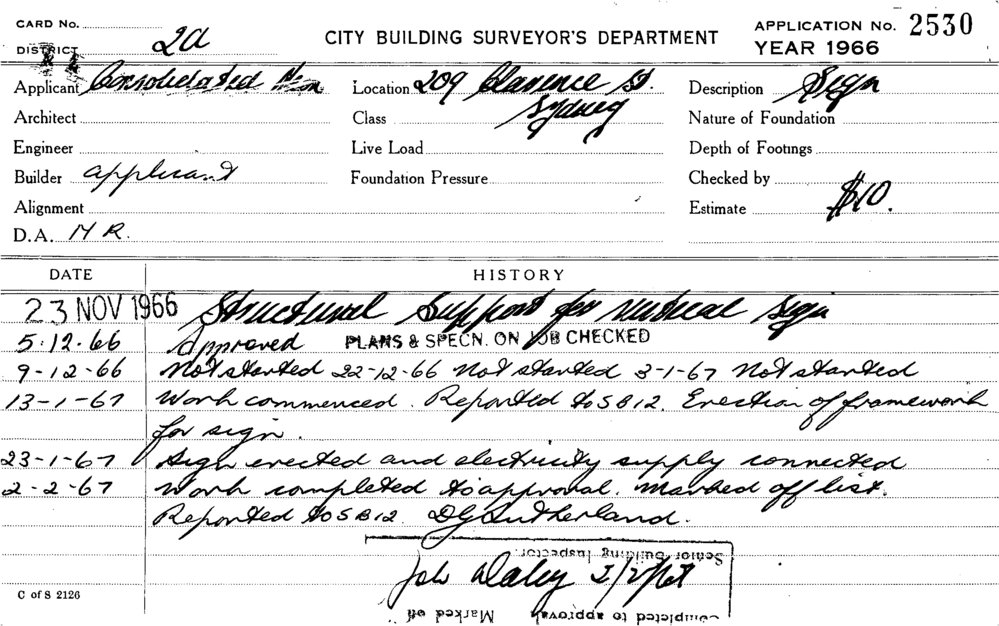 CARD No.
DISTRICT 2a
CITY BUILDING SURVEYOR'S DEPARTMENT
APPLICATION No. 2530
YEAR 1966
Applicant Consolidated Neon
Location 209 Clarence St.
Sydney
Description Sign
Architect
Class
Nature of Foundation
Engineer
Live Load
Depth of Footings
Builder applicant
Foundation Pressure
Checked by
Alignment
Estimate $10.
D.A. H R.
DATE HISTORY
23 NOV 1966 Structural Support for vertical sign
5.12.66 Approved PLANS & SPECN. ON JOB CHECKED
9-12-66 Not started 22-12-66 Not started 3-1-67 Not started
13-1-67 Work commenced. Reported to S B 12. Erection of framework
for sign.
23-1-67 Sign erected and electricity supply connected
2-2-67 Work completed to approval. Marked off list.
Reported to S B 12. D G Sutherland.
Senior Building Inspector.
Daley 2/2/67
Completed to approval
Marked off
C of S 2126